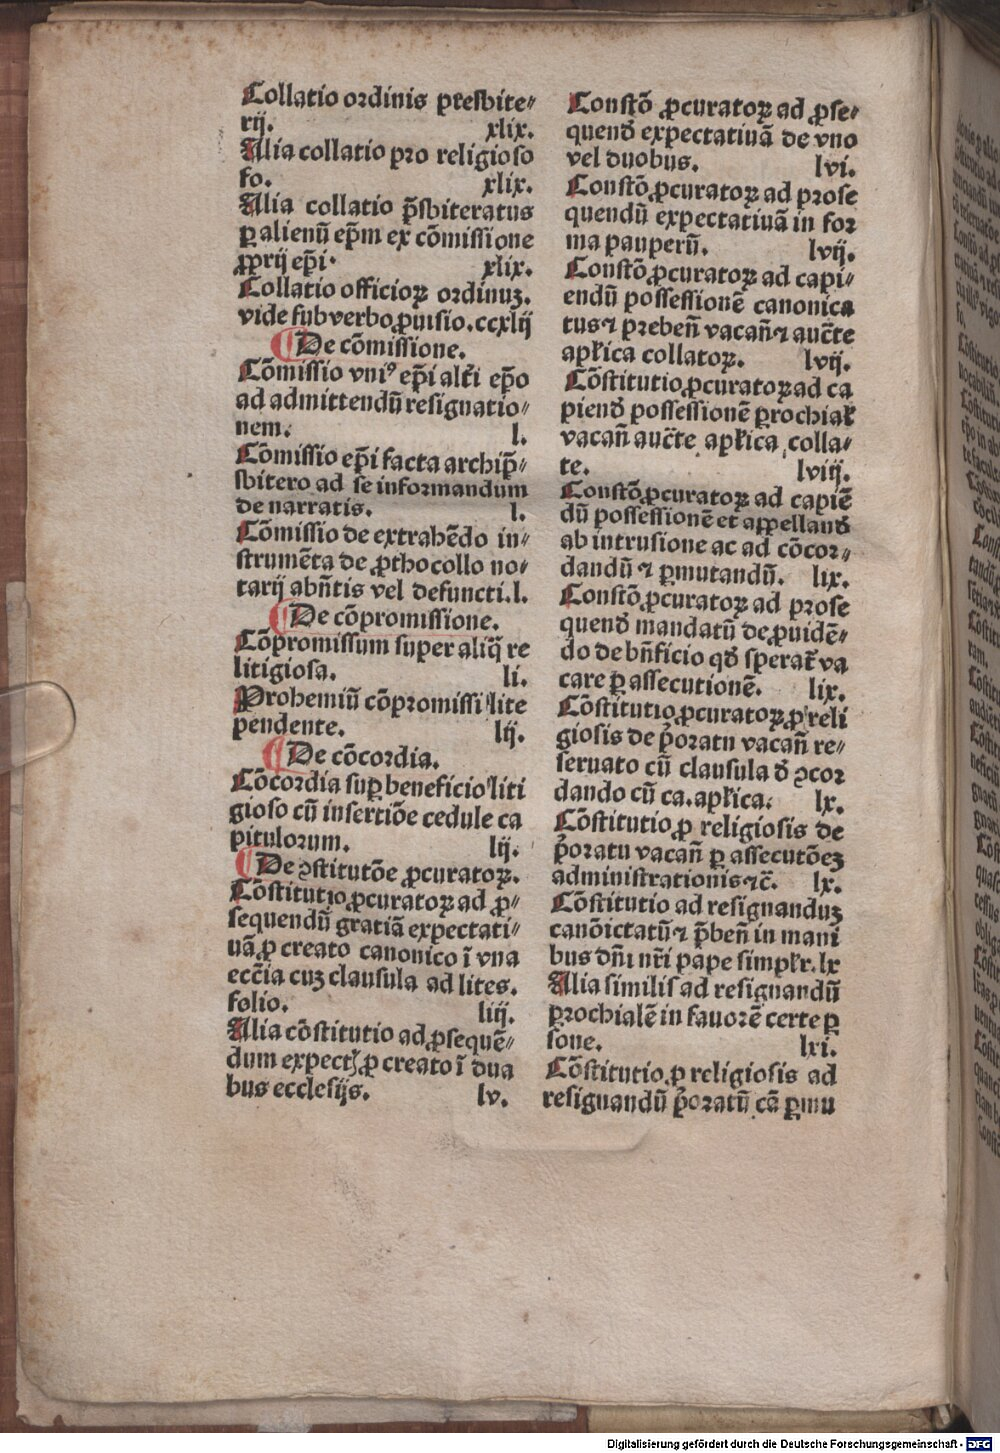 Collatio ordinis presbite⸗
rij. xlix.
Alia collatio pro religioso
so. xlix.
Alia collatio p̄sbiteratus
ꝑ alienū ep̄m ex cōmissione
ꝓprij ep̄i. xlix.
Collatio officioꝝ ordinuꝫ.
vide sub verbo ꝓuisio. ccxlij
De cōmissione.
Cōmissio vniꝰ ep̄i alt̄i ep̄o
ad admittendū resignatio⸗
nem. l.
Cōmissio ep̄i facta archip̄⸗
sbitero ad se informandum
de narratis. l.
Cōmissio de extrahēdo in⸗
strumēta de ꝓthocollo no⸗
tarij abn̄tis vel defuncti. l.
De cōpromissione.
Cōpromissum super aliq̄ re
litigiosa. li.
Prohemiū cōpromissi lite
pendente. lij.
De cōcordia.
Cōcordia suꝑ beneficio liti
gioso cū insertiōe cedule ca
pitulorum. lij.
De ꝯstitutōe ꝓcuratoꝝ.
Cōstitutio ꝓcuratoꝝ ad ꝓ⸗
sequendū gratiā expectati⸗
uā ꝓ creato canonico ī vna
ecc̄ia cuꝫ clausula ad lites.
folio. liij.
Alia cōstitutio ad ꝓsequē⸗
dum expect̄ ꝓ creato ī dua
bus ecclesijs. lv.
Constō ꝓcuratoꝝ ad ꝓse⸗
quend̄ expectatiuā de vno
vel duobus. lvi.
Constō ꝓcuratoꝝ ad prose
quendū expectatiuā in for
ma pauperū. lvij.
Constō ꝓcuratoꝝ ad capi⸗
endū possessionē canonica
tus ⁊ preben̄ vacan̄ ⁊ auc̄te
apl̄ica collatoꝝ. lvij.
Cōstitutio ꝓcuratoꝝ ad ca
piend̄ possessionē ꝑrochial̄
vacan̄ auc̄te apl̄ica colla⸗
te. lviij.
Constō ꝓcuratoꝝ ad capiē
dū possessionē et appelland̄
ab intrusione ac ad cōcor⸗
dandū ⁊ ꝑmutandū. lix.
Constō ꝓcuratoꝝ ad prose
quend̄ mandatū de ꝓuidē⸗
do de bn̄ficio qd̄ sperat̄ va
care ꝑ assecutionē. lix.
Cōstitutio ꝓcuratoꝝ ꝓ reli
giosis de p̄oratu vacan̄ re⸗
seruato cū clausula d̄ ꝯcor
dando cū ca. apl̄ica. lx.
Cōstitutio ꝓ religiosis de
p̄oratu vacan̄ ꝑ assecutōeꝫ
administrationis ⁊c̄. lx.
Cōstitutio ad resignanduꝫ
canōictatū ⁊ p̄ben̄ in mani
bus dn̄i nr̄i pape simpl̄r. lx
Alia similis ad resignandū
ꝑrochialē in fauorē certe ꝑ
sone. lxi.
Cōstitutio ꝓ religiosis ad
resignandū p̄oratū cā ꝑmu
Digitalisierung gefördert durch die Deutsche Forschungsgemeinschaft - DFG